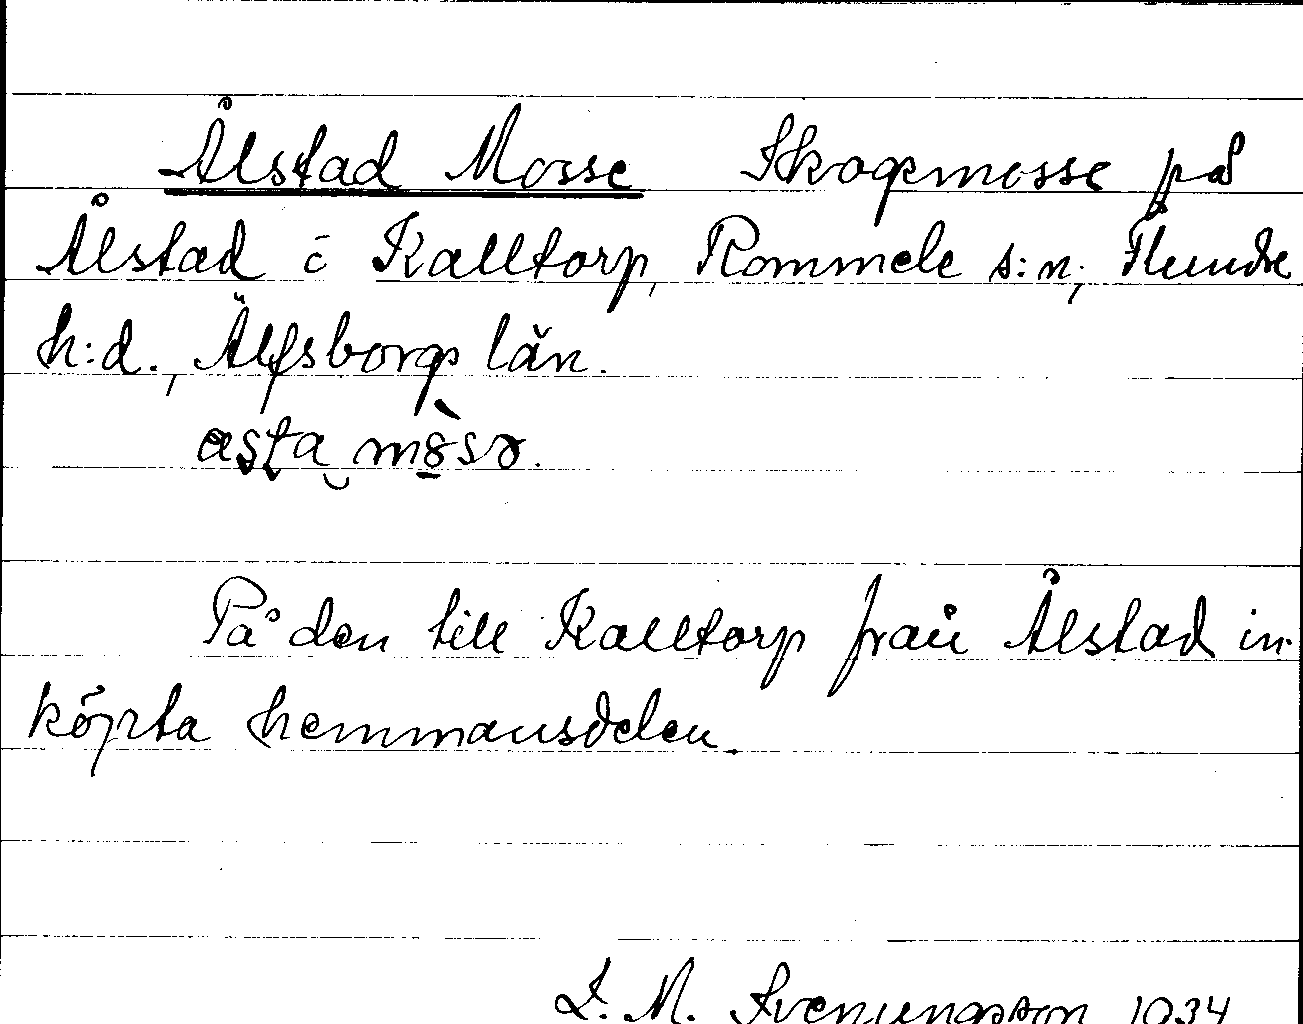 Ålstad Mosse Skogsmosse på
Ålstad i Kalltorp, Rommele s:n, Flundre
h:d., Älfsborgs län.
På den till Kalltorp från Ålstad in-
köpta hemmansdelen.
M. Svenungsson 1934